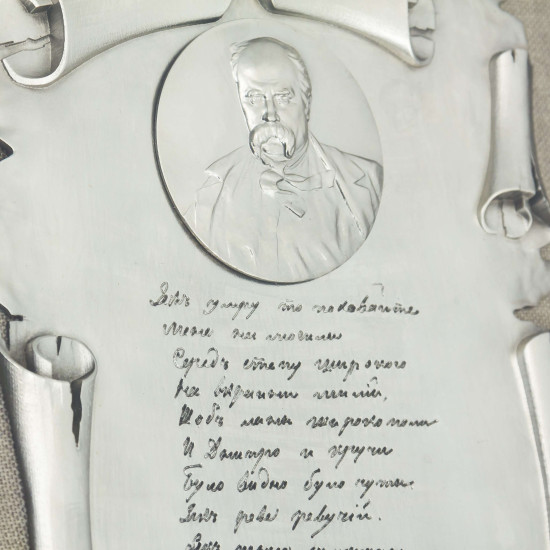 Якъ умру то поховайте
Мене на могили
Середъ степу широкого
На вкраини милій,
Щобъ ланы широкополи
И Днипро и кручи
Було видно було чуты.
Якъ реве ревучій.
Якъ